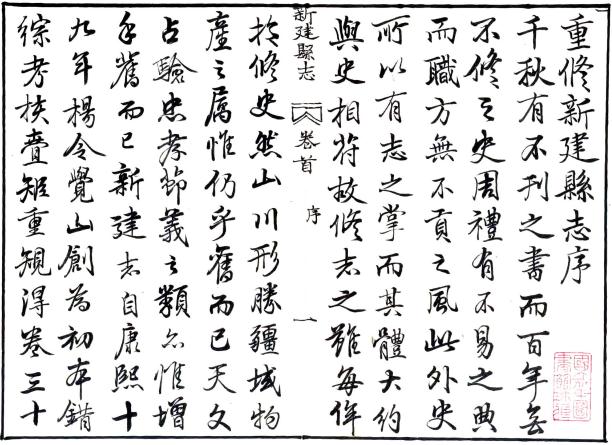 重修新建縣志序
千秋有不刊之書而百年無
不修之史周禮有不易之典
而職方無不貢之風此外史
所以有志之掌而其體大約
與史相符故修志之難每侔
新建縣志 卷首 序 一
於修史然山川形勝疆域物
產之屬惟仍乎舊而已天文
占驗忠孝節義之類亦惟增
乎舊而已新建志自康熙十
九年楊令覺山創為初本錯
綜考核賷矩重規得卷三十